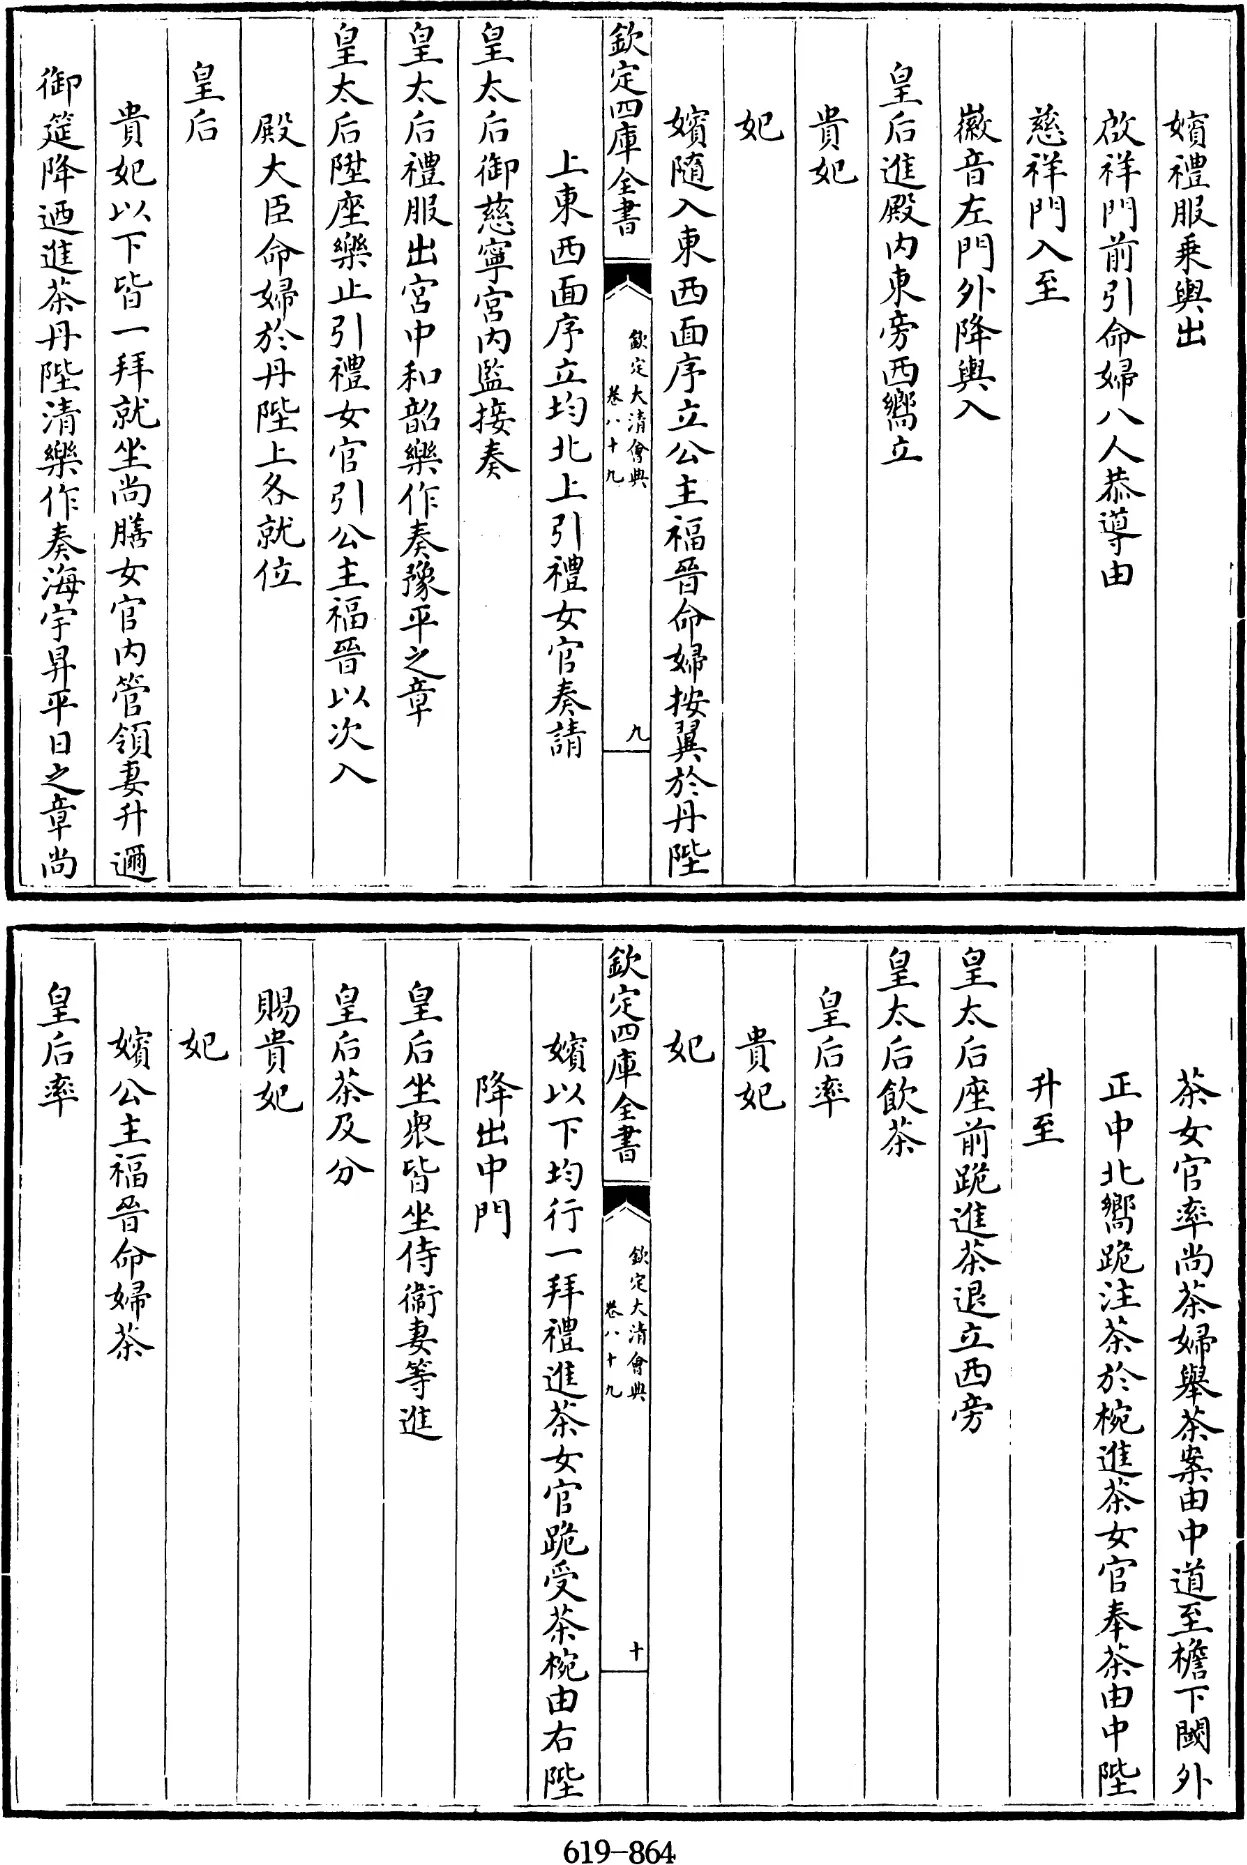 嬪禮服乗輿出
啟祥門前引命婦八人恭導由
慈祥門入至
徽音左門外降輿入
皇后進殿内東旁西嚮立
貴妃
妃
嬪隨入東西面序立公主福晉命婦按翼於丹陛
欽定四庫全書
欽定大清會典
卷八十九
九
上東西面序立均北上引禮女官奏請
皇太后御慈寧宮内監接奏
皇太后禮服出宮中和韶樂作奏豫平之章
皇太后陞座樂止引禮女官引公主福晉以次入
殿大臣命婦於丹陛上各就位
皇后
貴妃以下皆一拜就坐尚膳女官内管領妻升邇
御筵降迺進茶丹陛清樂作奏海宇昇平日之章尚
茶女官率尚茶婦舉茶案由中道至檐下閾外
正中北嚮跪注茶於椀進茶女官奉茶由中陛
升至
皇太后座前跪進茶退立西旁
皇太后飲茶
皇后率
貴妃
妃
欽定四庫全書
欽定大清會典
卷八十九
十
嬪以下均行一拜禮進茶女官跪受茶椀由右陛
降出中門
皇后坐衆皆坐侍衞妻等進
皇后茶及分
賜貴妃
妃
嬪公主福晉命婦茶
皇后率
619-864